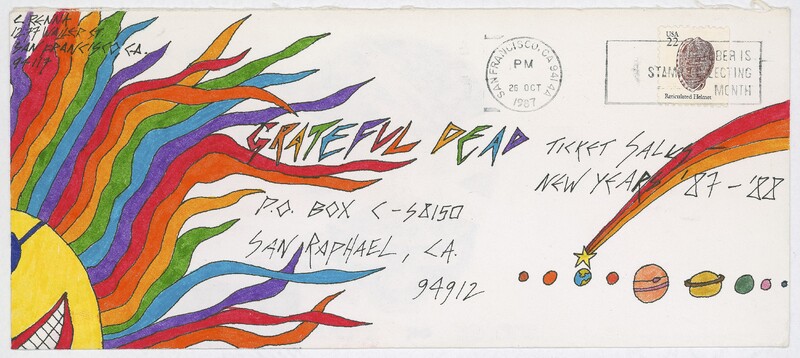 C. RENNA
1277 WALLER ST.
SAN FRANCISCO, CA.
94117
SAN FRANCISCO, CA 94144
PM
26 OCT
1987
USA
22
BER IS
STAMP COLLECTING
MONTH
Reticulated Helmet
GRATEFUL DEAD
TICKET SALES—
NEW YEARS '87-'88
P.O. BOX C-S8150
SAN RAPHAEL, CA.
94912